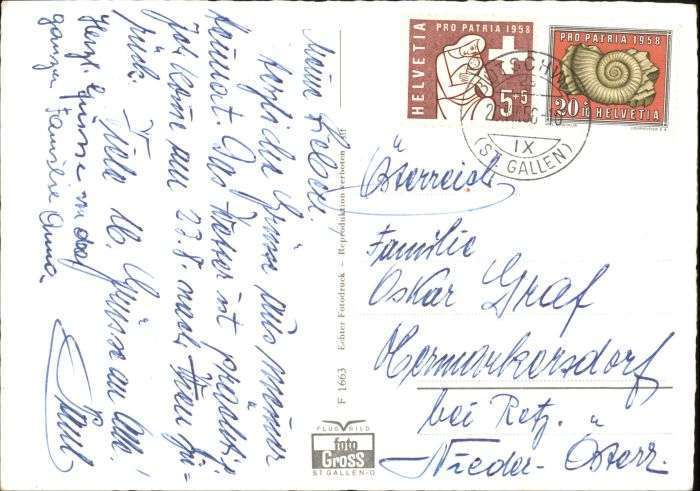 Meine Lieben!
Herzliche Grüsse aus meiner
Heimat. Das Wasser ist prächtig.
Ich komme am 23.8. nach Wien zu-
rück. Viele lb. Grüsse an alle!
Paul
Herzl. Grüsse an
ganze Familie Anna
F 1663 Echter Fotodruck – Reproduktion verboten
FLUGBILD
foto
Gross
ST GALLEN-O
HELVETIA
PRO PATRIA 1958
5+5
PRO PATRIA 1958
20+10 HELVETIA
IX
(ST. GALLEN)
Österreich
Familie
Oskar Graf
Hermarkersdorf
bei Retz.
Nieder-Österr.